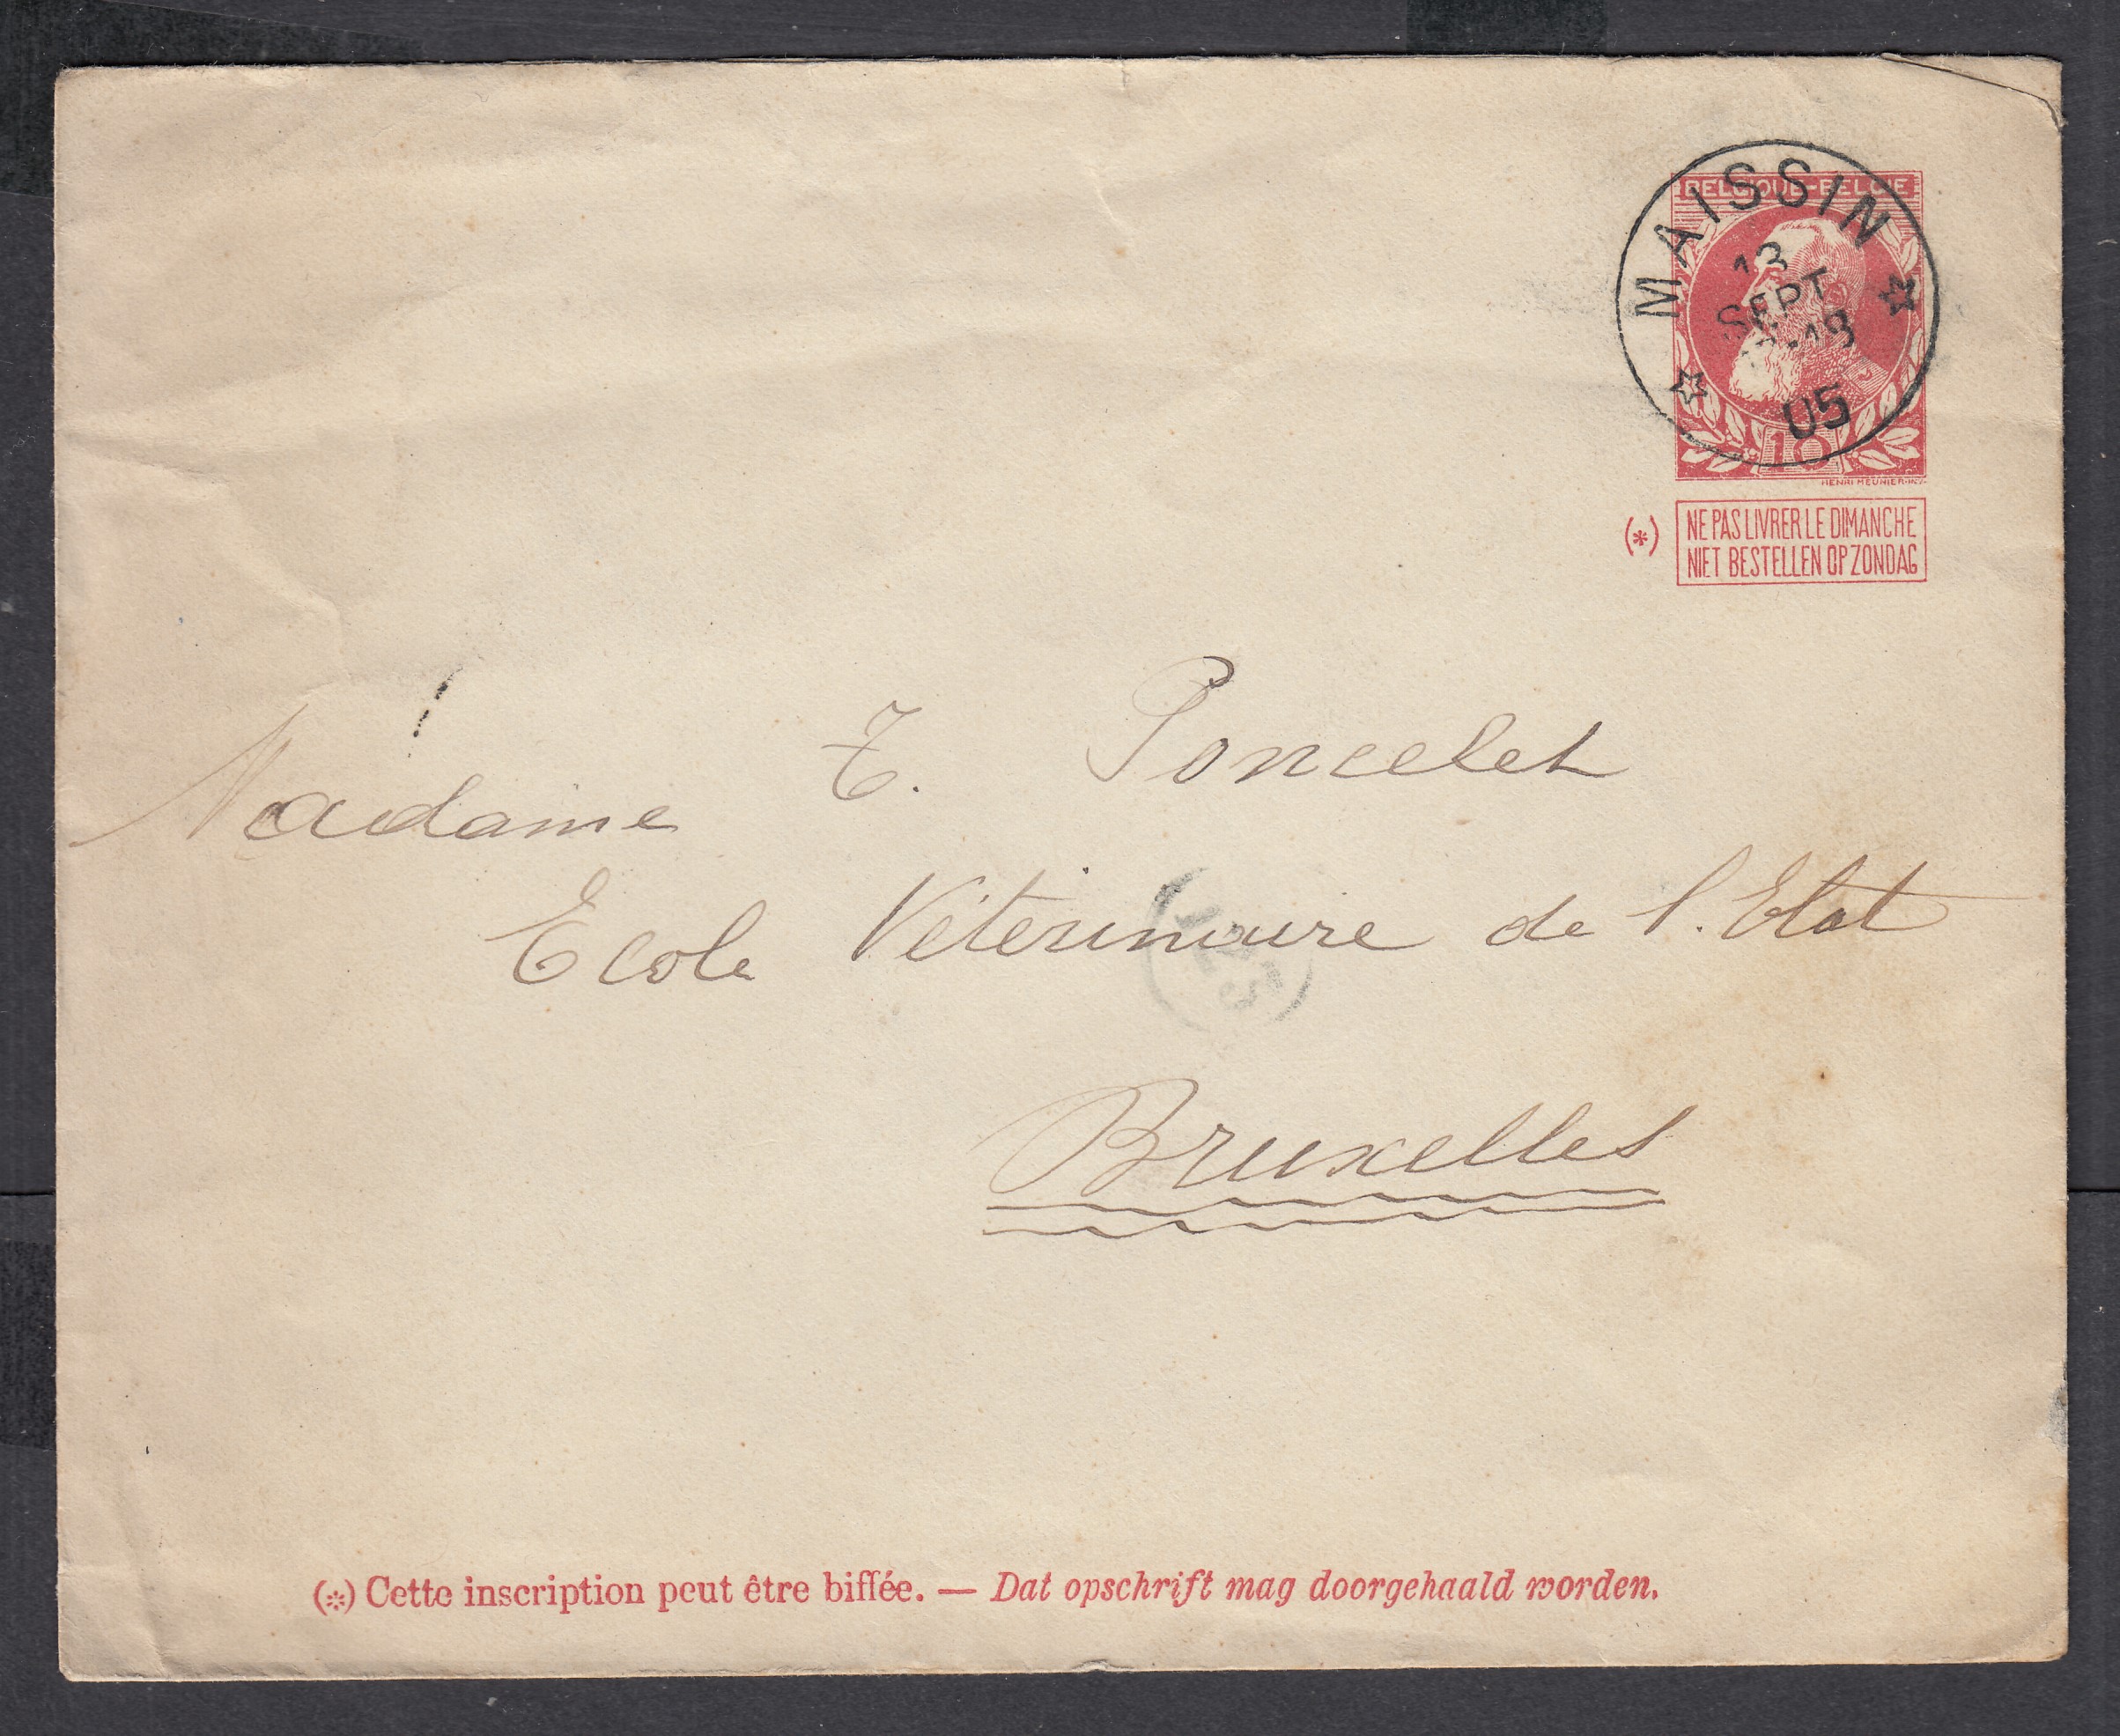 BELGIQUE-BELGIE
MAISSIN
13
SEPT
-18
05
10
HENRI MEUNIER.INV.
(*) NE PAS LIVRER LE DIMANCHE
NIET BESTELLEN OP ZONDAG
Madame T. Poncelet
Ecole Vétérinaire de l'Etat
Bruxelles
(*) Cette inscription peut être biffée. — Dat opschrift mag doorgehaald worden.